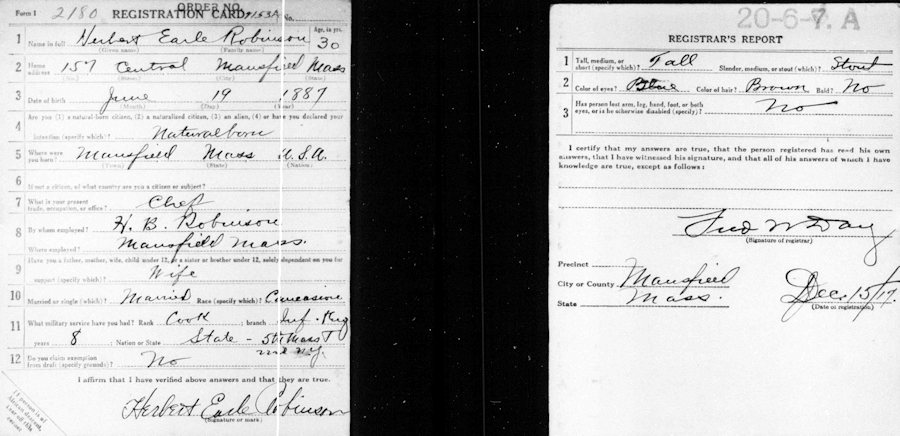 Form 1 2180 REGISTRATION CARD ORDER NO. No.
1 Name in full Herbert Earle Robinson Age, in yrs. 30
(Given name) (Family name)
2 Home address 157 Central Mansfield Mass
(No.) (Street) (City) (State)
3 Date of birth June 19 1887
(Month) (Day) (Year)
4 Are you (1) a natural-born citizen, (2) a naturalized citizen, (3) an alien, (4) or have you declared your
intention (specify which)? Natural born
5 Where were you born? Mansfield Mass U.S.A.
(Town) (State) (Nation)
6 If not a citizen, of what country are you a citizen or subject?
7 What is your present trade, occupation, or office? Chef
8 By whom employed? H. B. Robinson
Where employed? Mansfield Mass.
9 Have you a father, mother, wife, child under 12, or a sister or brother under 12, solely dependent on you for
support (specify which)? Wife
10 Married or single (which)? Married Race (specify which)? Caucasian
11 What military service have you had? Rank Cook ; branch Inf.
years 8 ; Nation or State State - 5th Mass
12 Do you claim exemption from draft (specify grounds)? No
I affirm that I have verified above answers and that they are true.
Herbert Earle Robinson
(Signature or mark)
20-6-7. A
REGISTRAR'S REPORT
1 Tall, medium, or short (specify which)? Tall Slender, medium, or stout (which)? Stout
2 Color of eyes? Blue Color of hair? Brown Bald? No
3 Has person lost arm, leg, hand, foot, or both
eyes, or is he otherwise disabled (specify)? No
I certify that my answers are true, that the person registered has read his own
answers, that I have witnessed his signature, and that all of his answers of which I have
knowledge are true, except as follows:
Fred W Day
(Signature of registrar)
Precinct
City or County Mansfield
State Mass.
Dec. 15/17.
(Date of registration)